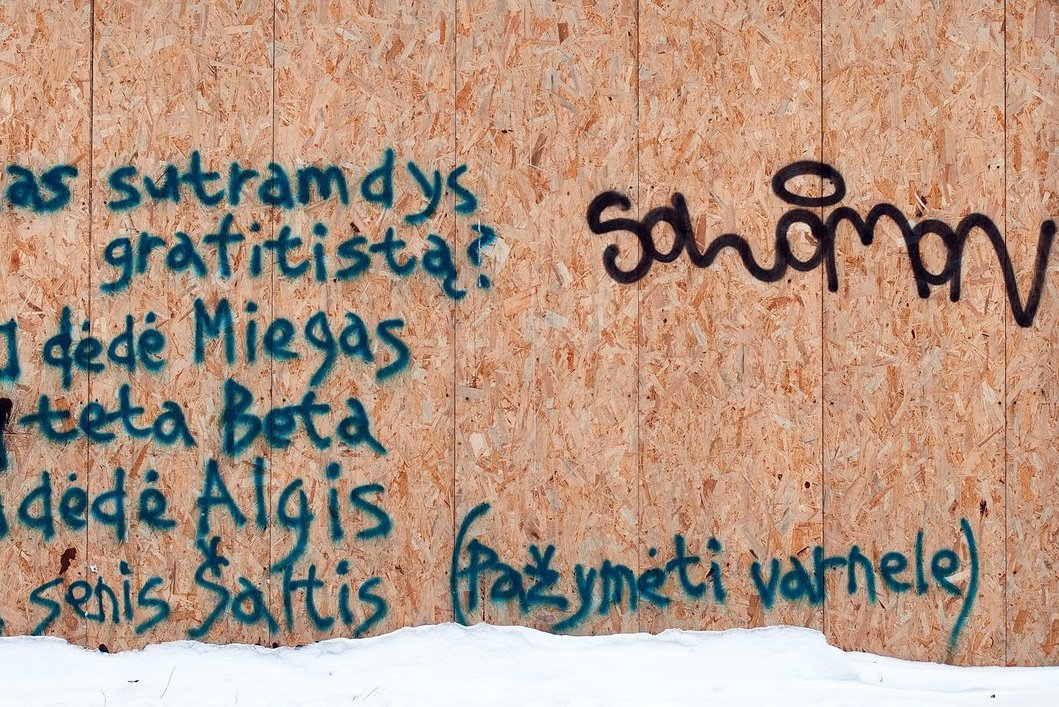 as sutramdys
grafitistą?
dėdė Miegas
teta Beta
dėdė Algis
senis Šaltis
(Pažymėti varnele)